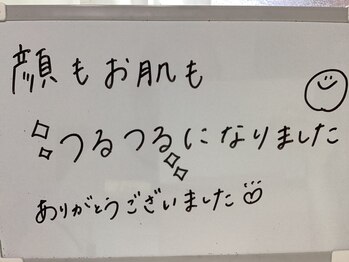 顔もお肌も
つるつるになりました
ありがとうございました